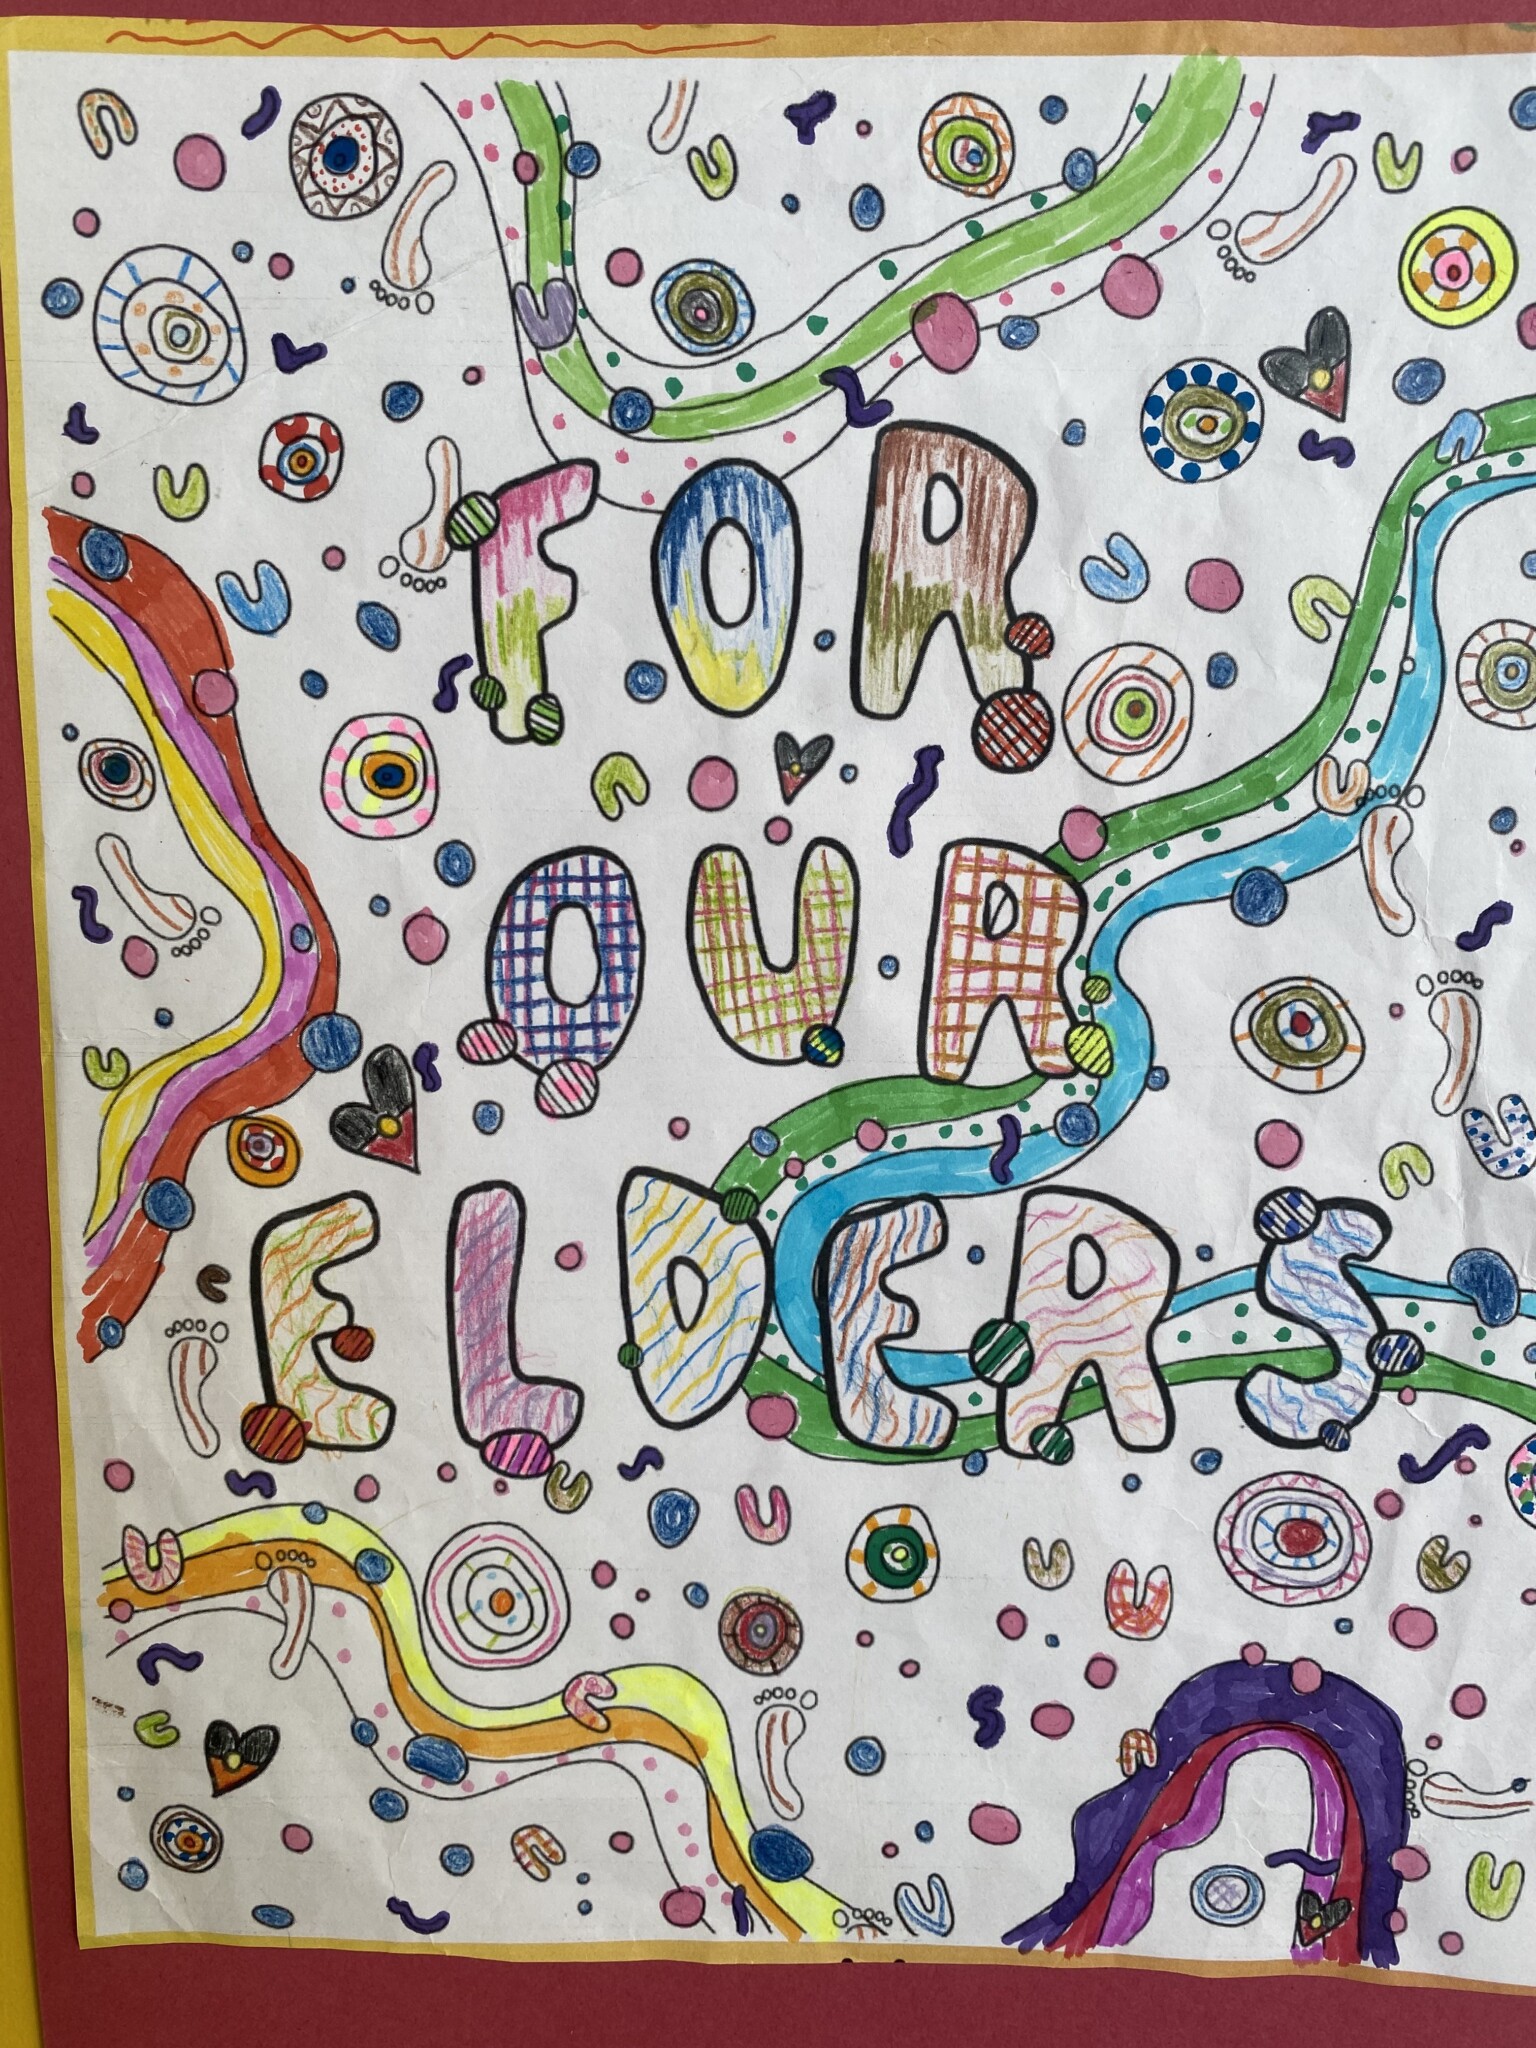 FOR
OUR
ELDERS